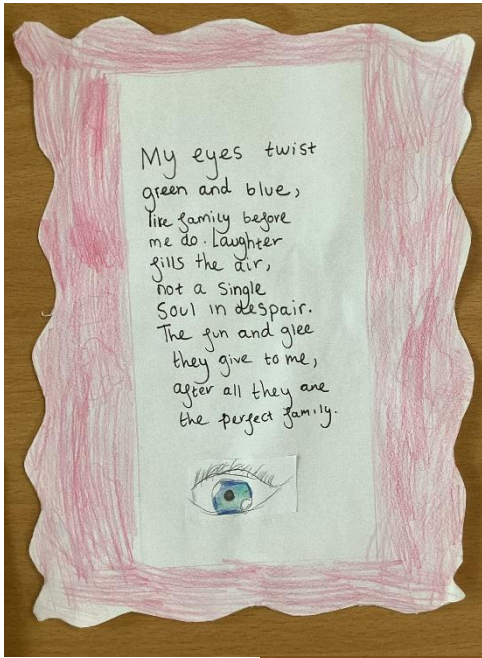 My eyes twist
green and blue,
like family before
me do. Laughter
fills the air,
not a single
soul in despair.
The fun and glee
they give to me,
after all they are
the perfect family.